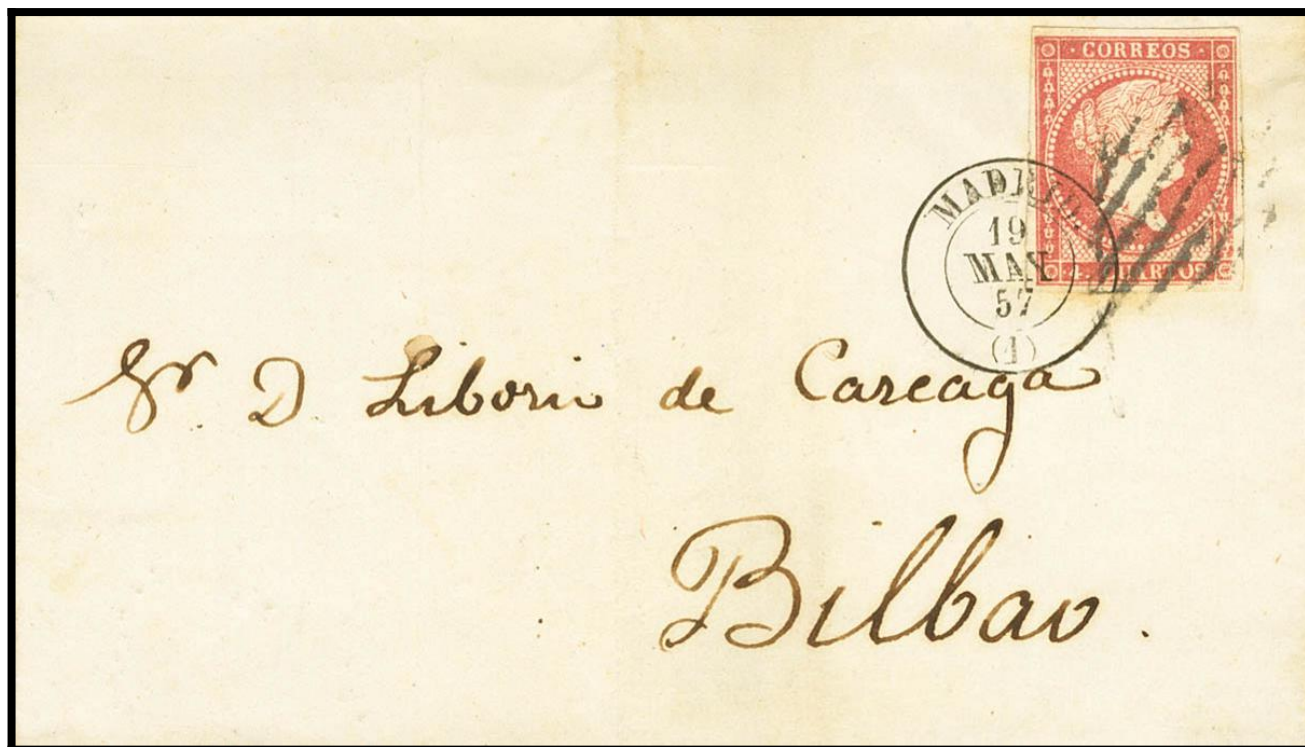 CORREOS
4 CUARTOS
MADRID
19
MAY
57
(1)
Sr D Liborio de Careaga
Bilbao.